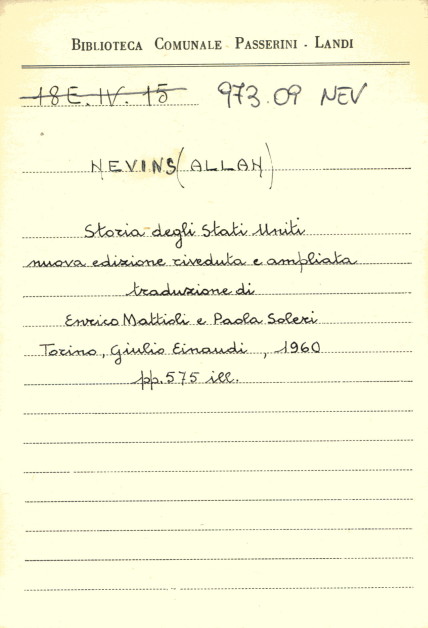 BIBLIOTECA COMUNALE PASSERINI - LANDI
18E.IV.15 973.09 NEV
NEVINS (ALLAN)
Storia degli Stati Uniti
nuova edizione riveduta e ampliata
traduzione di
Enrico Mattioli e Paola Soleri
Torino, Giulio Einaudi , 1960
pp. 575 ill.